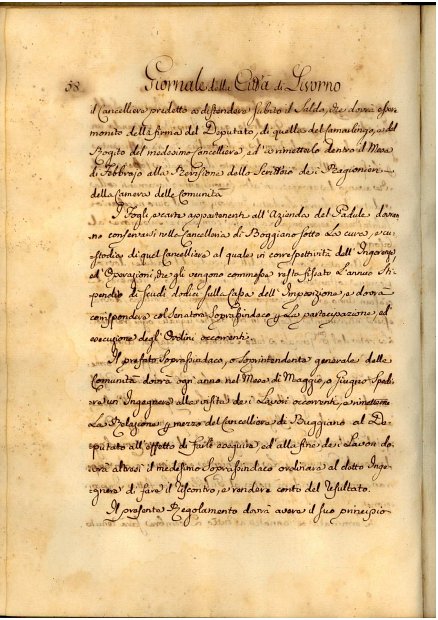 58. Giornale della Città di Livorno
il Cancelliere predetto a distendere subito il Saldo, che dovrà esser
munito della firma del Deputato, di quella del Camarlingo, e del
Rogito del medesimo Cancelliere, ed a rimetterlo dentro il Mese
di Febbrajo alla Revisione dello Scrittoio de i Ragionieri
della Camera delle Comunità
I Fogli, e carte appartenenti all'Azienda del Padule dovran
no conservarsi nella Cancelleria di Buggiano sotto la cura, e cu
stodia di quel Cancelliere al quale in correspettività dell'Ingerenze,
ed Operazioni che gli vengono commesse resta fissato l'annuo Sti
pendio di Scudi dodici sulla Cassa dell'Imposizione, e dovrà
corrispondere col Senatore Soprasindaco per la partecipazione, ed
esecuzione degl'Ordini occorrenti.
Il prefato Soprasindaco, o Soprintendente generale delle
Comunità dovrà ogni anno nel Mese di Maggio, o Giugno Spedi
re un Ingegnere alla visita de i Lavori occorrenti, e rimetterne
La Relazione per mezzo del Cancelliere di Buggiano al De
putato all'effetto di farli eseguire, ed alla fine de i Lavori do
verà altresì il medesimo Soprasindaco ordinare al detto Inge
gnere di fare il riscontro, e rendere conto del resultato.
Il presente Regolamento dovrà avere il suo principio